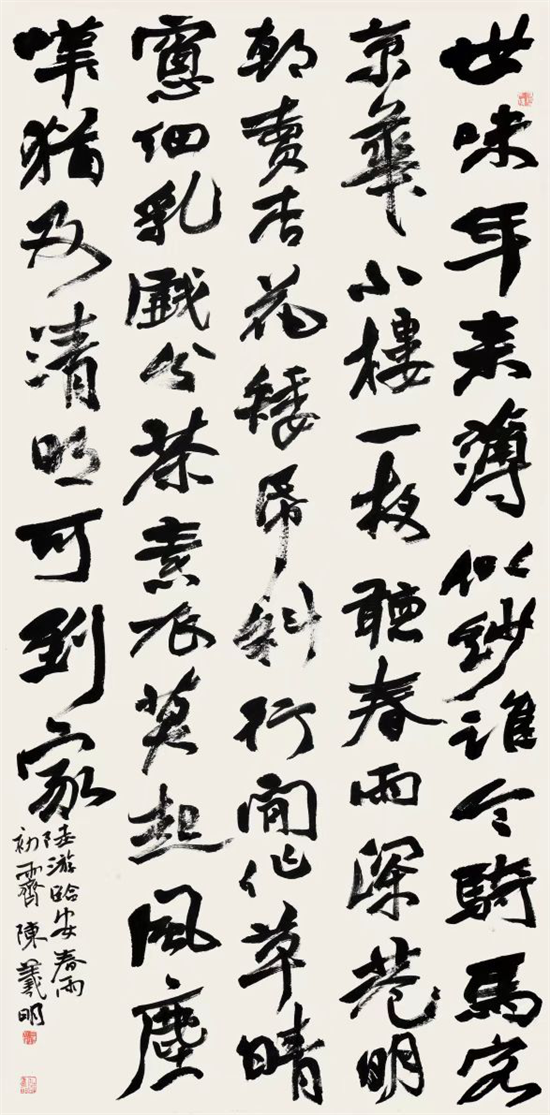 世味年來薄似紗誰令騎馬客
京華小樓一夜聽春雨深巷明
朝賣杏花矮帋斜行閒作草晴
窻細乳戲分茶素衣莫起風塵
嘆猶及清明可到家
陸游臨安春雨
初霽 陳羲明